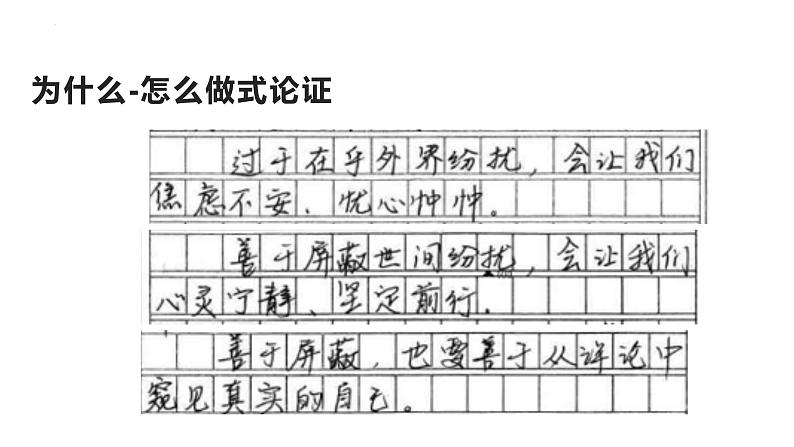 为什么-怎么做式论证
过于在乎外界纷扰，会让我们
焦虑不安、忧心忡忡。
善于屏蔽世间纷扰，会让我们
心灵宁静、坚定前行.
善于屏蔽，也要善于从评论中
窥见真实的自己。